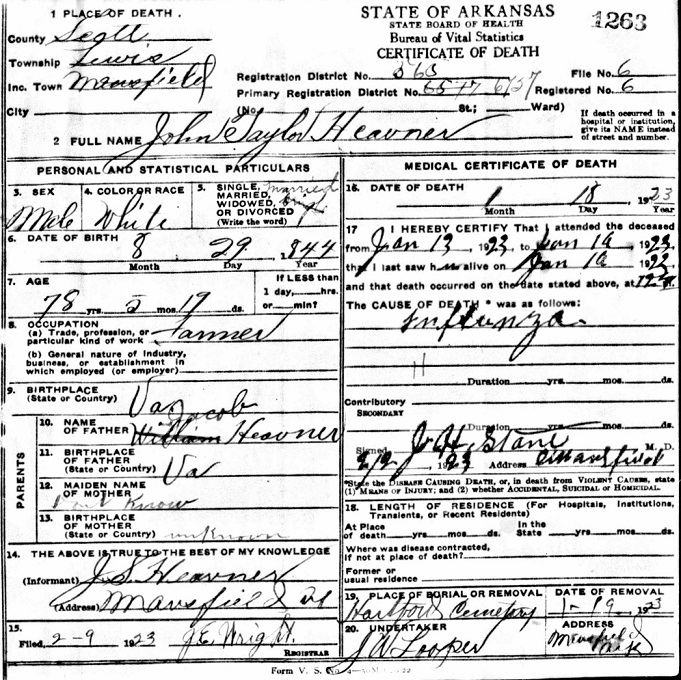 STATE OF ARKANSAS
STATE BOARD OF HEALTH
Bureau of Vital Statistics
CERTIFICATE OF DEATH
1263
1 PLACE OF DEATH
County Scott
Township Lewis
Inc. Town Mansfield
City
Registration District No. 563
File No. 6
Primary Registration District No. 6577 6137
Registered No. 6
(No. St.; Ward)
If death occurred in a hospital or institution, give its NAME instead of street and number.
2 FULL NAME John Taylor Heavner
PERSONAL AND STATISTICAL PARTICULARS
3. SEX
Male
4. COLOR OR RACE
White
5. SINGLE, MARRIED, WIDOWED, OR DIVORCED (Write the word)
Married
6. DATE OF BIRTH 8 29 1844
Month Day Year
7. AGE
78 yrs. 5 mos. 19 ds.
If LESS than 1 day,....hrs. or....min?
8. OCCUPATION
(a) Trade, profession, or particular kind of work Farmer
(b) General nature of Industry, business, or establishment in which employed (or employer)
9. BIRTHPLACE (State or Country) Va
PARENTS
10. NAME OF FATHER Jacob William Heavner
11. BIRTHPLACE OF FATHER (State or Country) Va
12. MAIDEN NAME OF MOTHER Dont Know
13. BIRTHPLACE OF MOTHER (State or Country) unknown
14. THE ABOVE IS TRUE TO THE BEST OF MY KNOWLEDGE
(Informant) J. S. Heavner
(Address) Mansfield
15. Filed, 2-9 1923 J.E. Wright.
REGISTRAR
MEDICAL CERTIFICATE OF DEATH
16. DATE OF DEATH 1 18 1923
Month Day Year
17 I HEREBY CERTIFY That I attended the deceased
from Jan 13 1923 to Jan 1923,
that I last saw him alive on Jan 192
and that death occurred on the date stated above, at
The CAUSE OF DEATH * was as follows:
Influenza.
Duration yrs. mos. ds.
Contributory
SECONDARY
Duration yrs. mos. ds.
Signed J H Stone M. D.
2/2 1923 Address Mansfield
*State the DISEASE CAUSING DEATH, or, in death from VIOLENT CAUSES, state
(1) MEANS OF INJURY; and (2) whether ACCIDENTAL, SUICIDAL OR HOMICIDAL.
18. LENGTH OF RESIDENCE (For Hospitals, Institutions, Transients, or Recent Residents)
At Place of death yrs. mos. ds. In the State yrs. mos. ds.
Where was disease contracted, if not at place of death?
Former or usual residence
19. PLACE OF BURIAL OR REMOVAL
Hartford Cemetery
DATE OF REMOVAL
1-19 1923
20. UNDERTAKER
J W Looper
ADDRESS
Mansfield Ark
Form V. S. No.